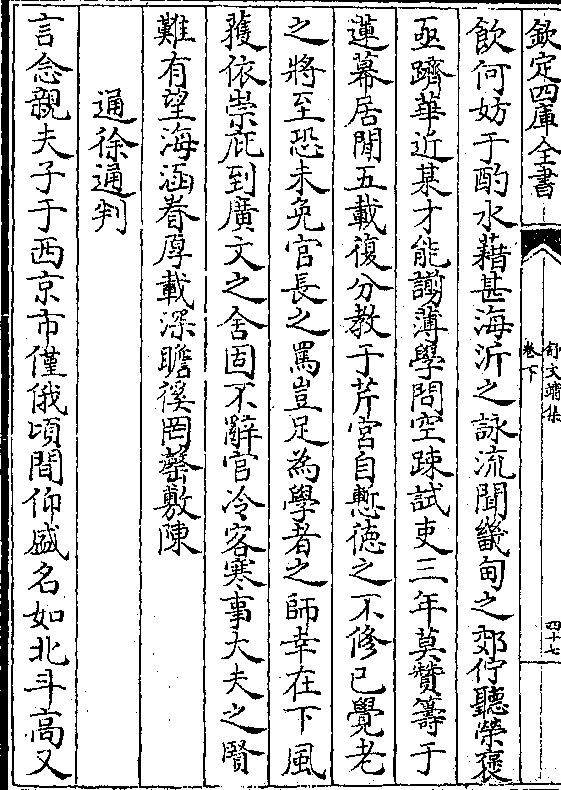 欽定四庫全書
舒文靖集
卷下
四十七
飲何妨于酌水藉甚海沂之詠流聞畿甸之郊佇聽榮褒
亟躋華近某才能謭薄學問空疎試吏三年莫贊籌于
蓮幕居閒五載復分教于芹宮自慙徳之不修已覺老
之將至恐未免官長之罵豈足為學者之師幸在下風
獲依崇庇到廣文之舍固不辭官冷客寒事大夫之賢
難有望海涵眷厚載深瞻徯罔罄敷陳
通徐通判
言念親夫子于西京市僅俄頃間仰盛名如北斗高又